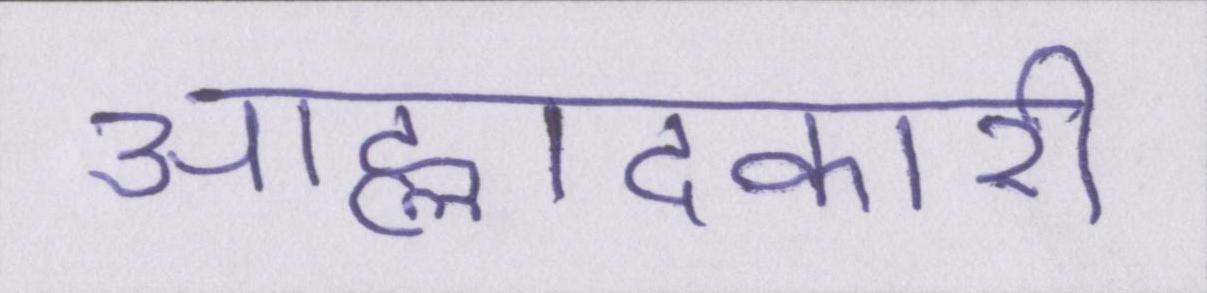 आह्लादकारी